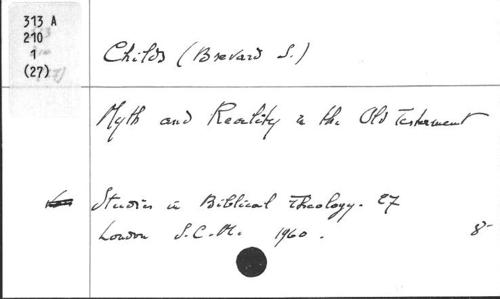 313 A
210
1
(27)
Childs (Brevard S.)
Myth and Reality in the Old Testament
Studies in Biblical Theology. 27
London S.C.M. 1960. 8-